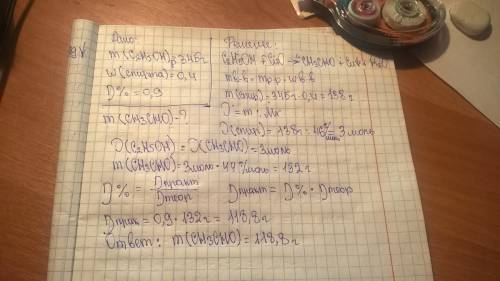 Дано:
m(C₂H₅OH)р = 345г
w(спирта) = 0,4
D% = 0,9
m(CH₃CHO) - ?
Решение:
C₂H₅OH + CuO → CH₃CHO + Cu + H₂O
m в-в = m р-р · w в-в
m(спир) = 345г · 0,4 = 138г
ν = m : Mr
ν(спирт) = 138г : 46 г/моль = 3 моль
ν(C₂H₅OH) = ν(CH₃CHO) = 3моль
m(CH₃CHO) = 3моль · 44 г/моль = 132г
D% = Dпракт / Dтеор Dпракт = D% · Dтеор
Dпрак = 0,9 · 132г = 118,8г
Ответ: m(CH₃CHO) = 118,8г